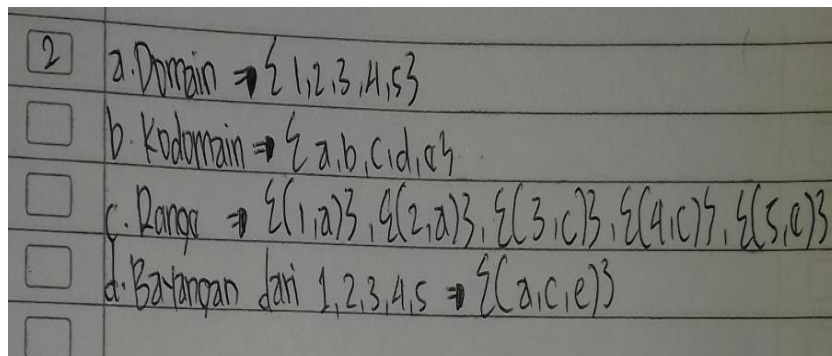 2 a. Domain ⇒ {1,2,3,4,5}
b. Kodomain ⇒ {a,b,c,d,e}
c. Range ⇒ {(1,a)}, {(2,a)}, {(3,c)}, {(4,c)}, {(5,e)}
d. Bayangan dari 1,2,3,4,5 ⇒ {(a,c,e)}